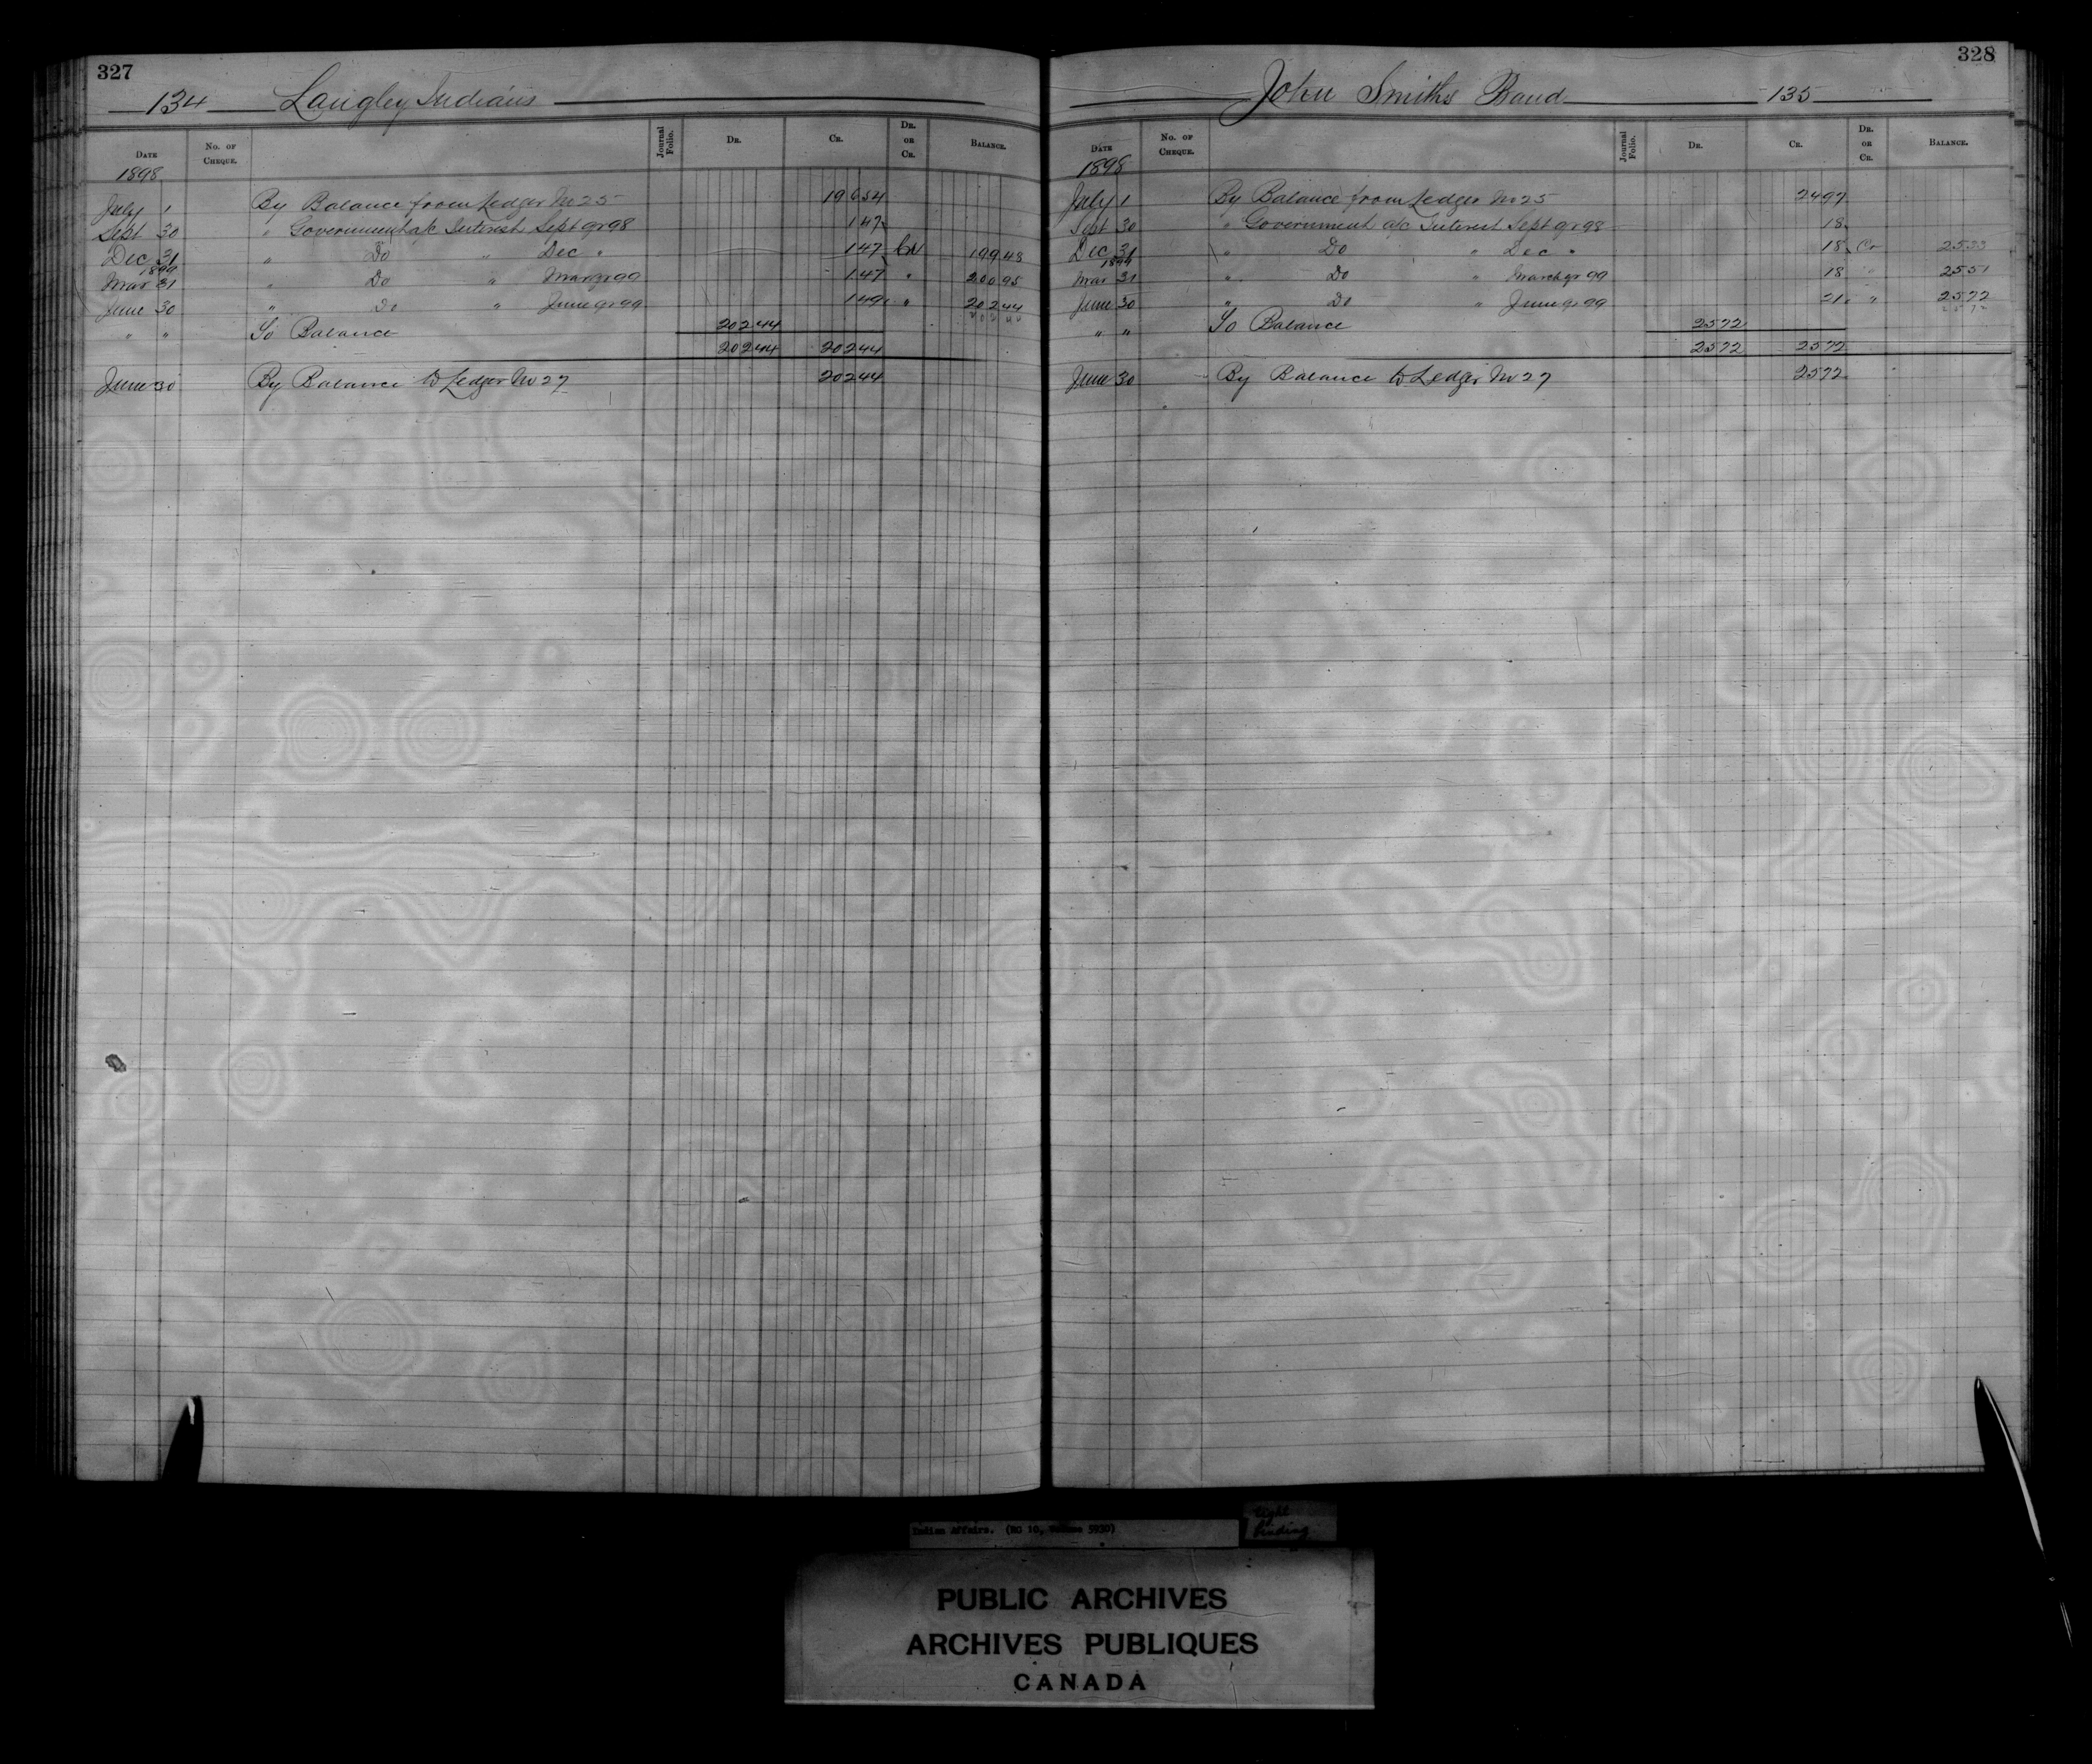 327
134 Langley Indians
Date No. of Cheque. Journal Folio. Dr. Cr. Dr. or Cr. Balance.
1898
July 1 By Balance from Ledger No 25 196 54
Sept 30 " Government a/c Interest Sept qr 98 1 47
Dec 31 " Do " Dec " 1 47 Cr 199 48
1899
Mar 31 " Do " Mar qr 99 1 47 " 200 95
June 30 " Do " June qr 99 1 49 " 202 44
" " To Balance 202 44
202 44 202 44
June 30 By Balance to Ledger No 27 202 44
328
John Smiths Band 135
Date No. of Cheque. Journal Folio. Dr. Cr. Dr. or Cr. Balance.
1898
July 1 By Balance from Ledger No 25 24 97
Sept 30 " Government a/c Interest Sept qr 98 18
Dec 31 " Do " Dec " 18 Cr 25 33
1899
Mar 31 " Do " March qr 99 18 " 25 51
June 30 " Do " June qr 99 21 " 25 72
" " To Balance 25 72
25 72 25 72
June 30 By Balance to Ledger No 27 25 72
Indian Affairs. (RG 10, Volume 5930)
tight binding
PUBLIC ARCHIVES
ARCHIVES PUBLIQUES
CANADA